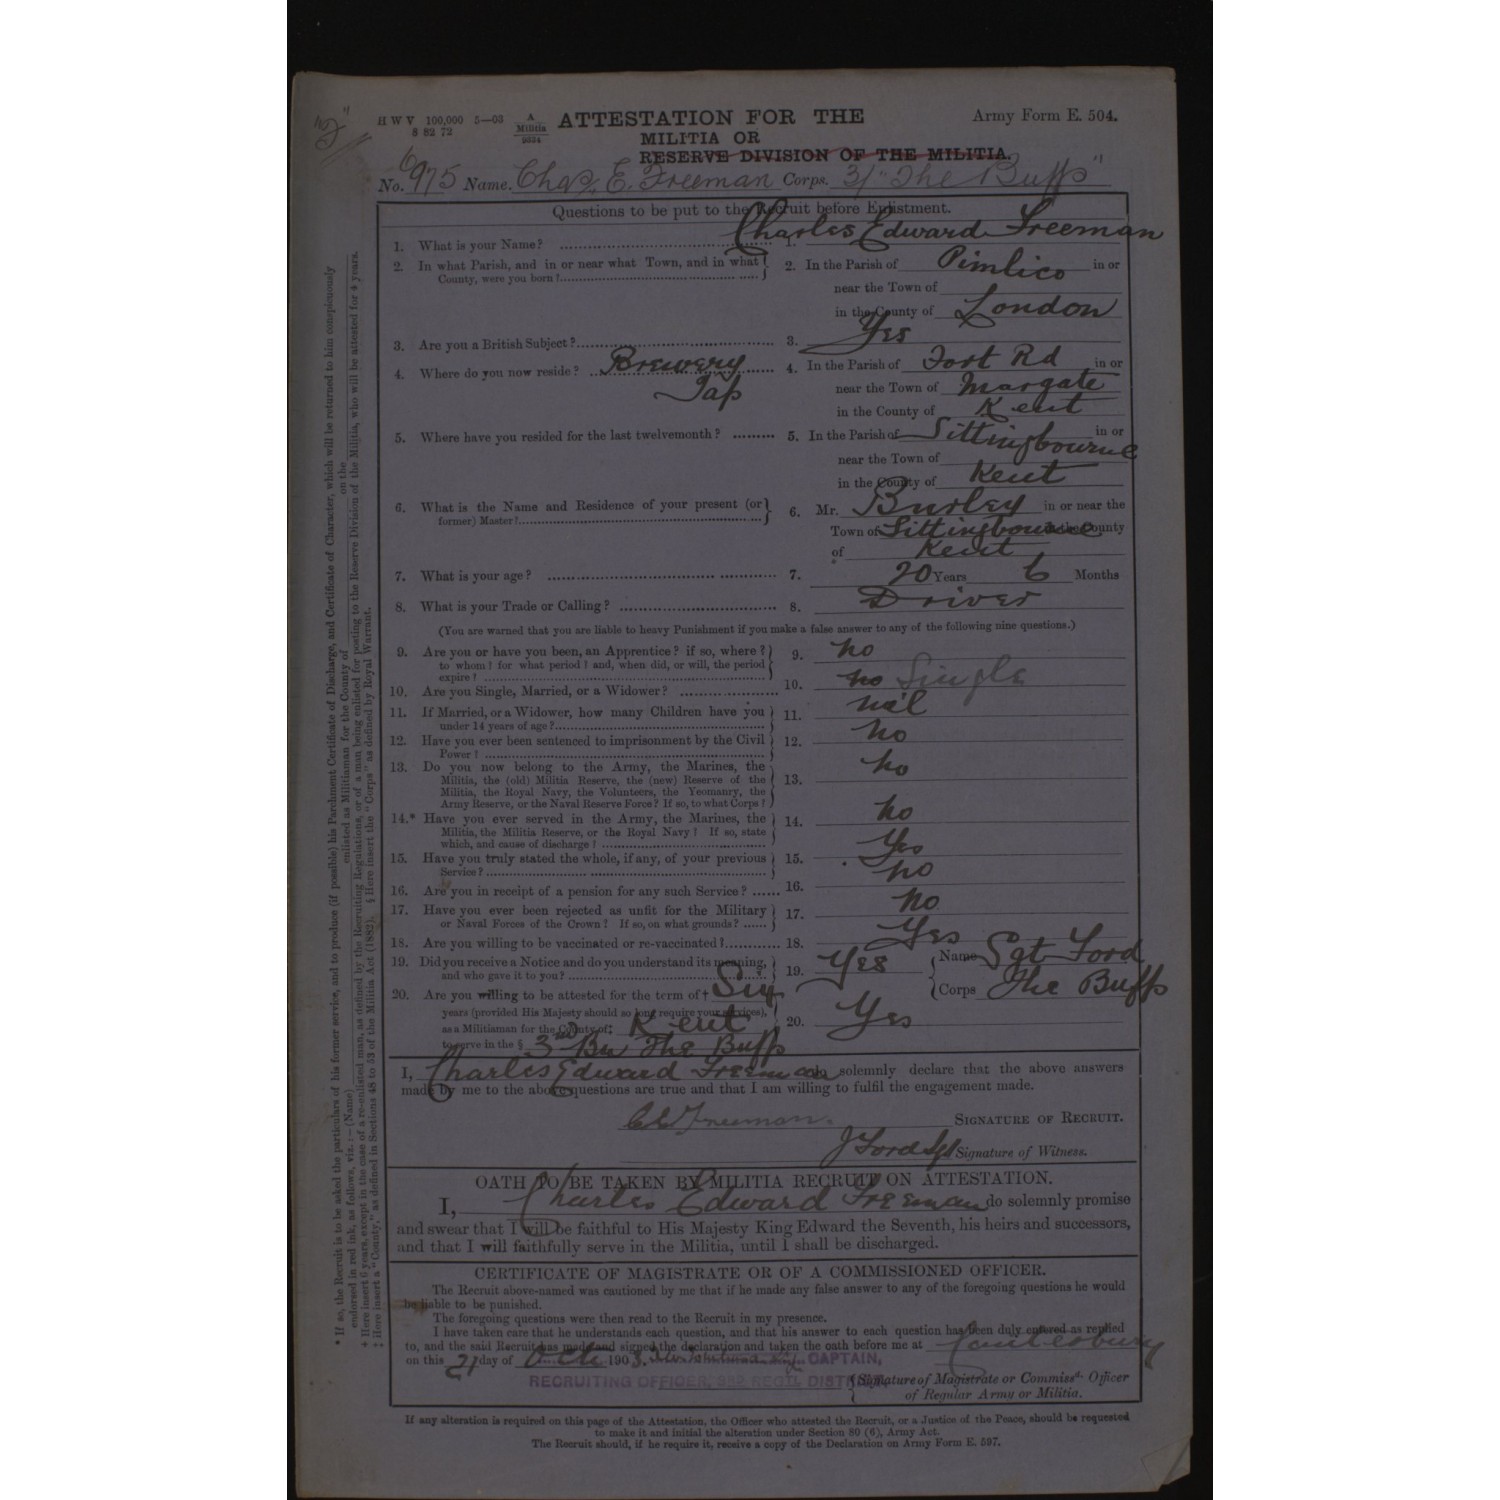 "2"
H W V 100,000 5—03
8 82 72
A
Militia
9034
ATTESTATION FOR THE
MILITIA OR
RESERVE DIVISION OF THE MILITIA.
Army Form E. 504.
No. 6975 Name. Chas. E. Freeman Corps. 3/ "The Buffs"
Questions to be put to the Recruit before Enlistment.
1. What is your Name? 1. Charles Edward Freeman
2. In what Parish, and in or near what Town, and in what County, were you born? 2. In the Parish of Pimlico in or
near the Town of
in the County of London
3. Are you a British Subject? 3. Yes
4. Where do you now reside? Brewery Tap 4. In the Parish of Fort Rd in or
near the Town of Margate
in the County of Kent
5. Where have you resided for the last twelvemonth? 5. In the Parish of Sittingbourne in or
near the Town of
in the County of Kent
6. What is the Name and Residence of your present (or former) Master? 6. Mr. Burley in or near the
Town of Sittingbourne in the County
of Kent
7. What is your age? 7. 20 Years 6 Months
8. What is your Trade or Calling? 8. Driver
(You are warned that you are liable to heavy Punishment if you make a false answer to any of the following nine questions.)
9. Are you or have you been, an Apprentice? if so, where? to whom? for what period? and, when did, or will, the period expire? 9. no
10. Are you Single, Married, or a Widower? 10. no Single
11. If Married, or a Widower, how many Children have you under 14 years of age? 11. nil
12. Have you ever been sentenced to imprisonment by the Civil Power? 12. no
13. Do you now belong to the Army, the Marines, the Militia, the (old) Militia Reserve, the (new) Reserve of the Militia, the Royal Navy, the Volunteers, the Yeomanry, the Army Reserve, or the Naval Reserve Force? If so, to what Corps? 13. no
14.* Have you ever served in the Army, the Marines, the Militia, the Militia Reserve, or the Royal Navy? If so, state which, and cause of discharge? 14. no
15. Have you truly stated the whole, if any, of your previous Service? 15. Yes
16. Are you in receipt of a pension for any such Service? 16. no
17. Have you ever been rejected as unfit for the Military or Naval Forces of the Crown? If so, on what grounds? 17. no
18. Are you willing to be vaccinated or re-vaccinated? 18. Yes
19. Did you receive a Notice and do you understand its meaning, and who gave it to you? 19. Yes Name Sgt Ford
Corps The Buffs
20. Are you willing to be attested for the term of † Six
years (provided His Majesty should so long require your services),
as a Militiaman for the County of ‡ Kent 20. Yes
to serve in the § 3rd Bn The Buffs
I, Charles Edward Freeman do solemnly declare that the above answers
made by me to the above questions are true and that I am willing to fulfil the engagement made.
C E Freeman. SIGNATURE OF RECRUIT.
J Ford Sgt Signature of Witness.
OATH TO BE TAKEN BY MILITIA RECRUIT ON ATTESTATION.
I, Charles Edward Freeman do solemnly promise
and swear that I will be faithful to His Majesty King Edward the Seventh, his heirs and successors,
and that I will faithfully serve in the Militia, until I shall be discharged.
CERTIFICATE OF MAGISTRATE OR OF A COMMISSIONED OFFICER.
The Recruit above-named was cautioned by me that if he made any false answer to any of the foregoing questions he would
be liable to be punished.
The foregoing questions were then read to the Recruit in my presence.
I have taken care that he understands each question, and that his answer to each question has been duly entered as replied
to, and the said Recruit has made and signed the declaration and taken the oath before me at Canterbury
on this 21 day of Oct 1903. CAPTAIN,
RECRUITING OFFICER, 3RD REGTL DISTRICT
Signature of Magistrate or Commissd. Officer
of Regular Army or Militia.
If any alteration is required on this page of the Attestation, the Officer who attested the Recruit, or a Justice of the Peace, should be requested
to make it and initial the alteration under Section 80 (6), Army Act.
The Recruit should, if he require it, receive a copy of the Declaration on Army Form E. 597.
* If so, the Recruit is to be asked the particulars of his former service, and to produce (if possible) his Parchment Certificate of Discharge, and Certificate of Character, which will be returned to him conspicuously
endorsed in red ink, as follows, viz.:—(Name) enlisted as Militiaman for the County of on the
† Here insert 6 years, except in the case of a re-enlisted man, as defined by the Recruiting Regulations, or of a man being enlisted for posting to the Reserve Division of the Militia, who will be attested for 4 years.
‡ Here insert a "County," as defined in Sections 48 to 53 of the Militia Act (1882). § Here insert the "Corps" as defined by Royal Warrant.